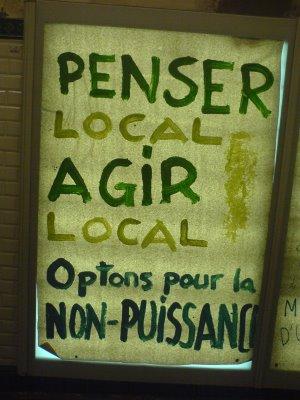 PENSER
LOCAL
AGiR
LOCAL
Optons pour la
NON-PUISSANCE
M
D'